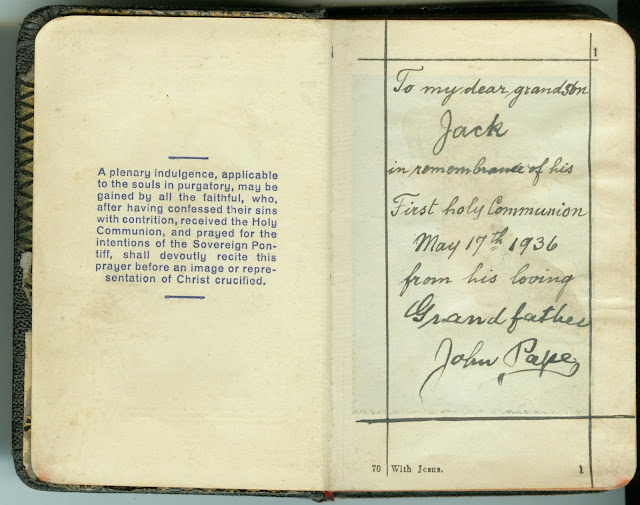 A plenary indulgence, applicable
to the souls in purgatory, may be
gained by all the faithful, who,
after having confessed their sins
with contrition, received the Holy
Communion, and prayed for the
intentions of the Sovereign Pon-
tiff, shall devoutly recite this
prayer before an image or repre-
sentation of Christ crucified.
1
To my dear grandson
Jack
in remembrance of his
First holy Communion
May 17th 1936
from his loving
Grandfather
John Pape
70 With Jesus. 1